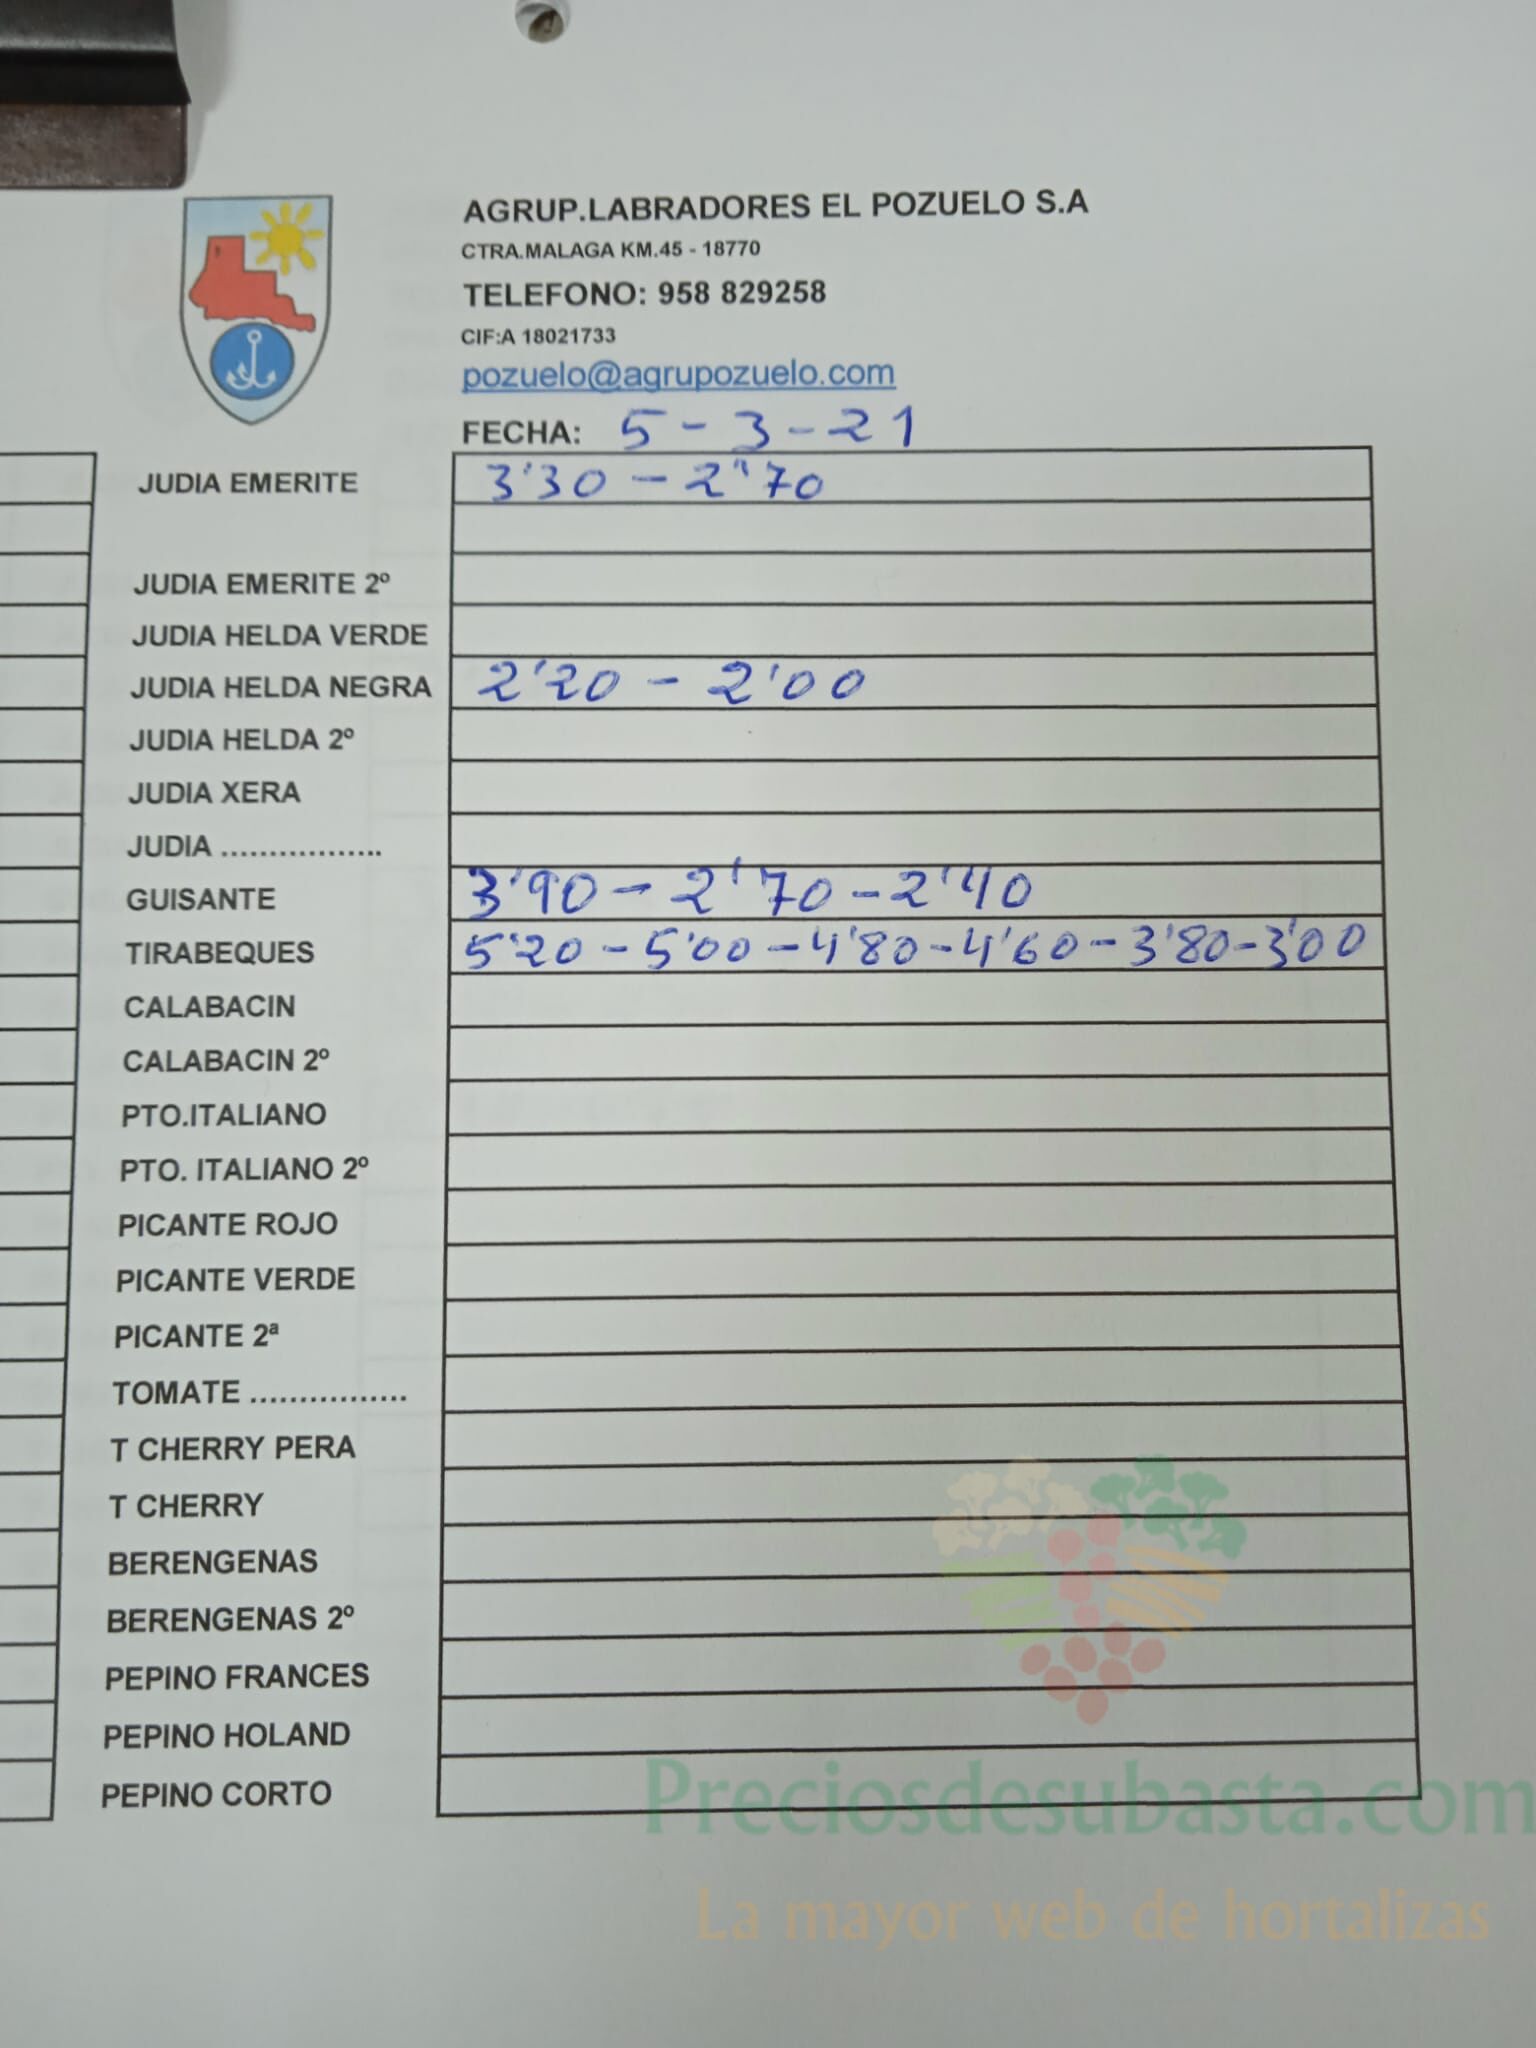 AGRUP.LABRADORES EL POZUELO S.A
CTRA.MALAGA KM.45 - 18770
TELEFONO: 958 829258
CIF:A 18021733
pozuelo@agrupozuelo.com
FECHA: 5-3-21
JUDIA EMERITE 3'30 - 2'70
JUDIA EMERITE 2º
JUDIA HELDA VERDE
JUDIA HELDA NEGRA 2'20 - 2'00
JUDIA HELDA 2º
JUDIA XERA
JUDIA .................
GUISANTE 3'90 - 2'70 - 2'40
TIRABEQUES 5'20 - 5'00 - 4'80 - 4'60 - 3'80 - 3'00
CALABACIN
CALABACIN 2º
PTO.ITALIANO
PTO. ITALIANO 2º
PICANTE ROJO
PICANTE VERDE
PICANTE 2ª
TOMATE ................
T CHERRY PERA
T CHERRY
BERENGENAS
BERENGENAS 2º
PEPINO FRANCES
PEPINO HOLAND
PEPINO CORTO
Preciosdesubasta.com
La mayor web de hortalizas